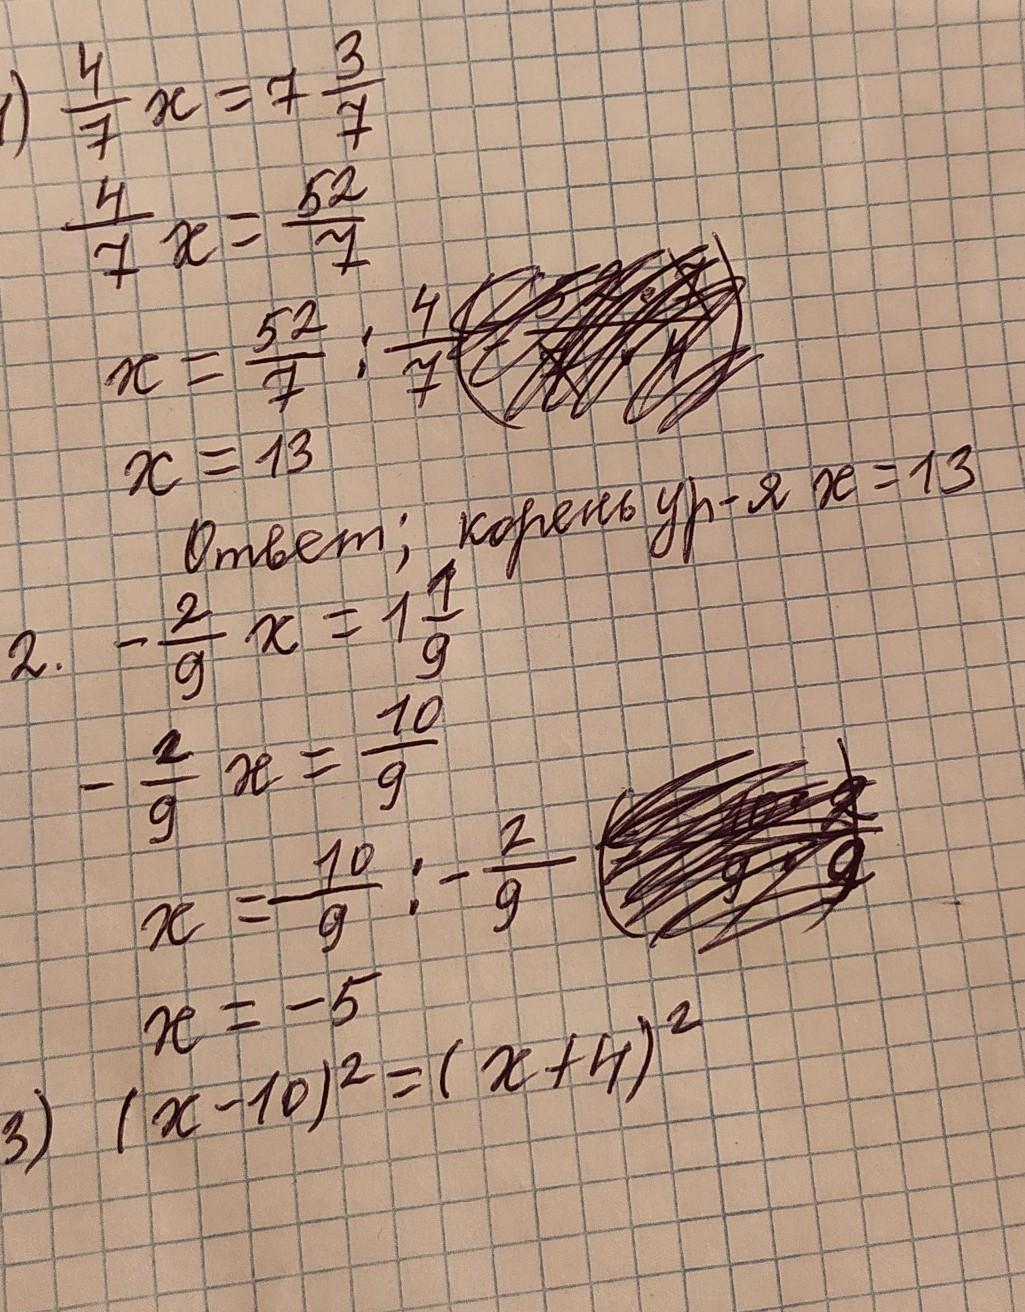 1) 4/7 x = 7 3/7
4/7 x = 52/7
x = 52/7 : 4/7
x = 13
Ответ; корень ур-я x = 13
2. - 2/9 x = 1 1/9
- 2/9 x = 10/9
x = 10/9 : - 2/9
x = -5
3) (x-10)² = (x+4)²